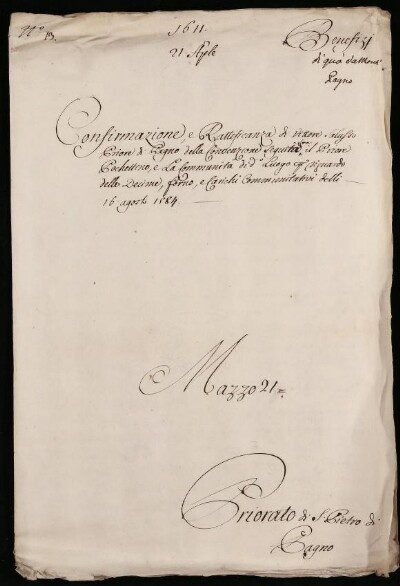 N.º 13.
1611
21 Aple
Benefizj
di qua da Monti
Pagno
Confirmazione e Rattificanza di vittore Saluzzo
Priore di Pagno della Convenzione seguita tra il Priore
Pochettino, e La Communità di d.º Luogo riguardo
delle Decime, forno, e Carichi Communitativi delli
16 agosto 1584.
Mazzo 21
Priorato di S. Pietro di
Pagno